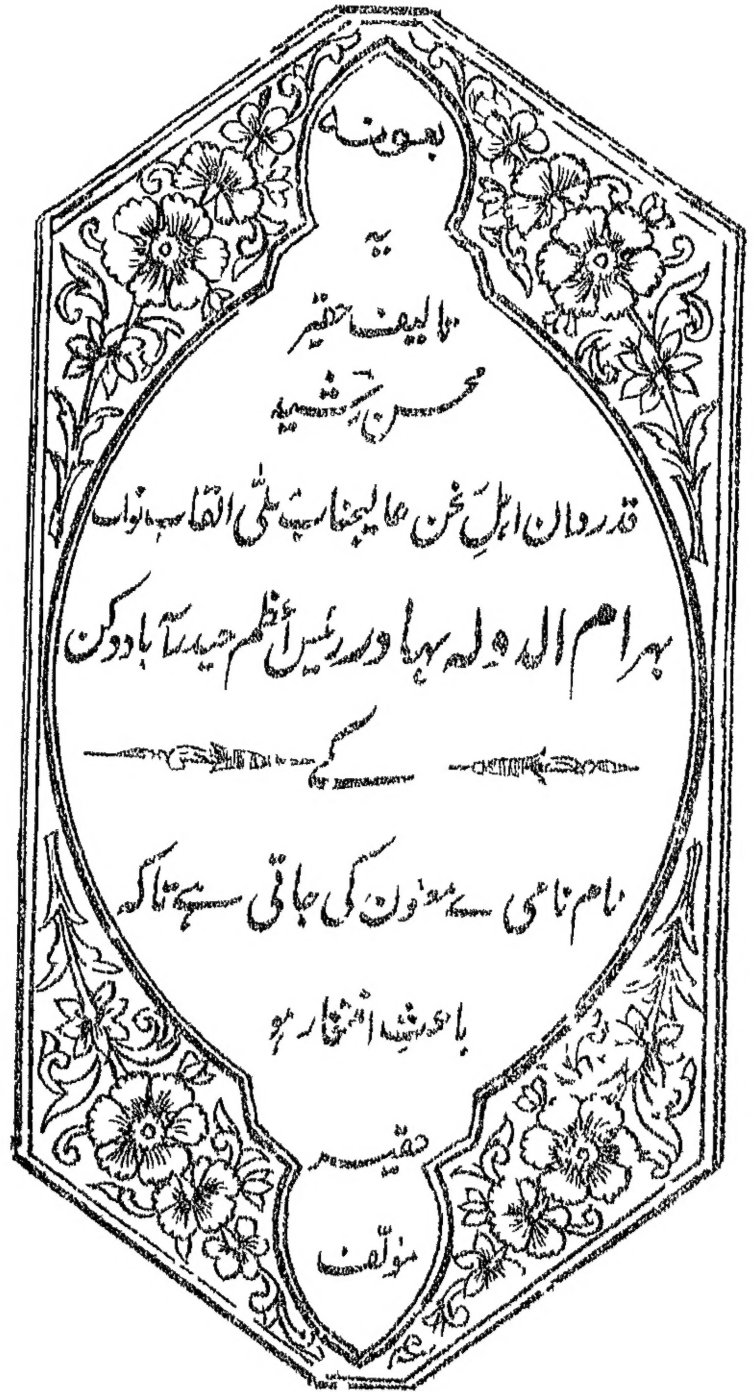 بعونہ
یہ
تالیف حقیر
محسن
قدردان اہلِ سخن عالیجناب معلّی القاب نواب
بہرام الدولہ بہادر رئیس اعظم حیدرآباد دکن
کے
نام نامی سے معنون کی جاتی ہے تاکہ
باعثِ افتخار ہو
حقیر
مؤلّف